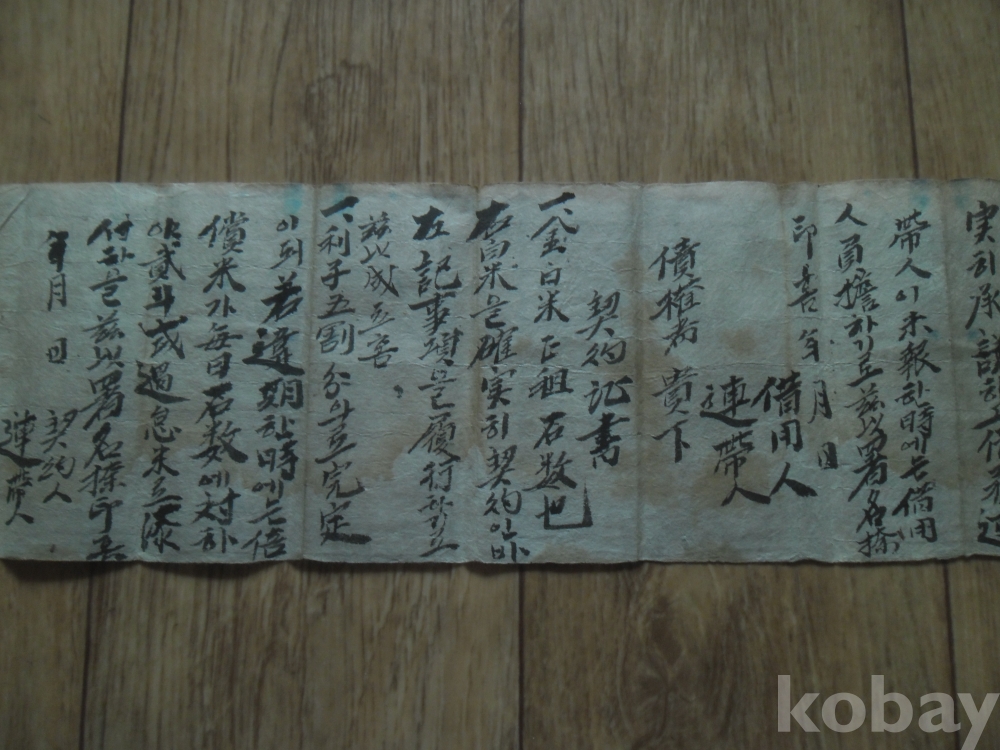 実히承諾하고借未還
帶人이未報한時에는借用
人負擔하기로玆以署名捺
印是喜 年 月 日
借用人
連帶人
債權者 貴下
契約証書
一、金白米正租 石数也
右白米을確実히契約인바
左記事項을履行하기로
玆以成立喜
一、利子五割分으로完定
이되若違期한時에는倍
償米가每日石数에対하
야貳斗式過怠米로添
付하을玆以署名捺印喜
年月 日
契約人
連帶人
kobay